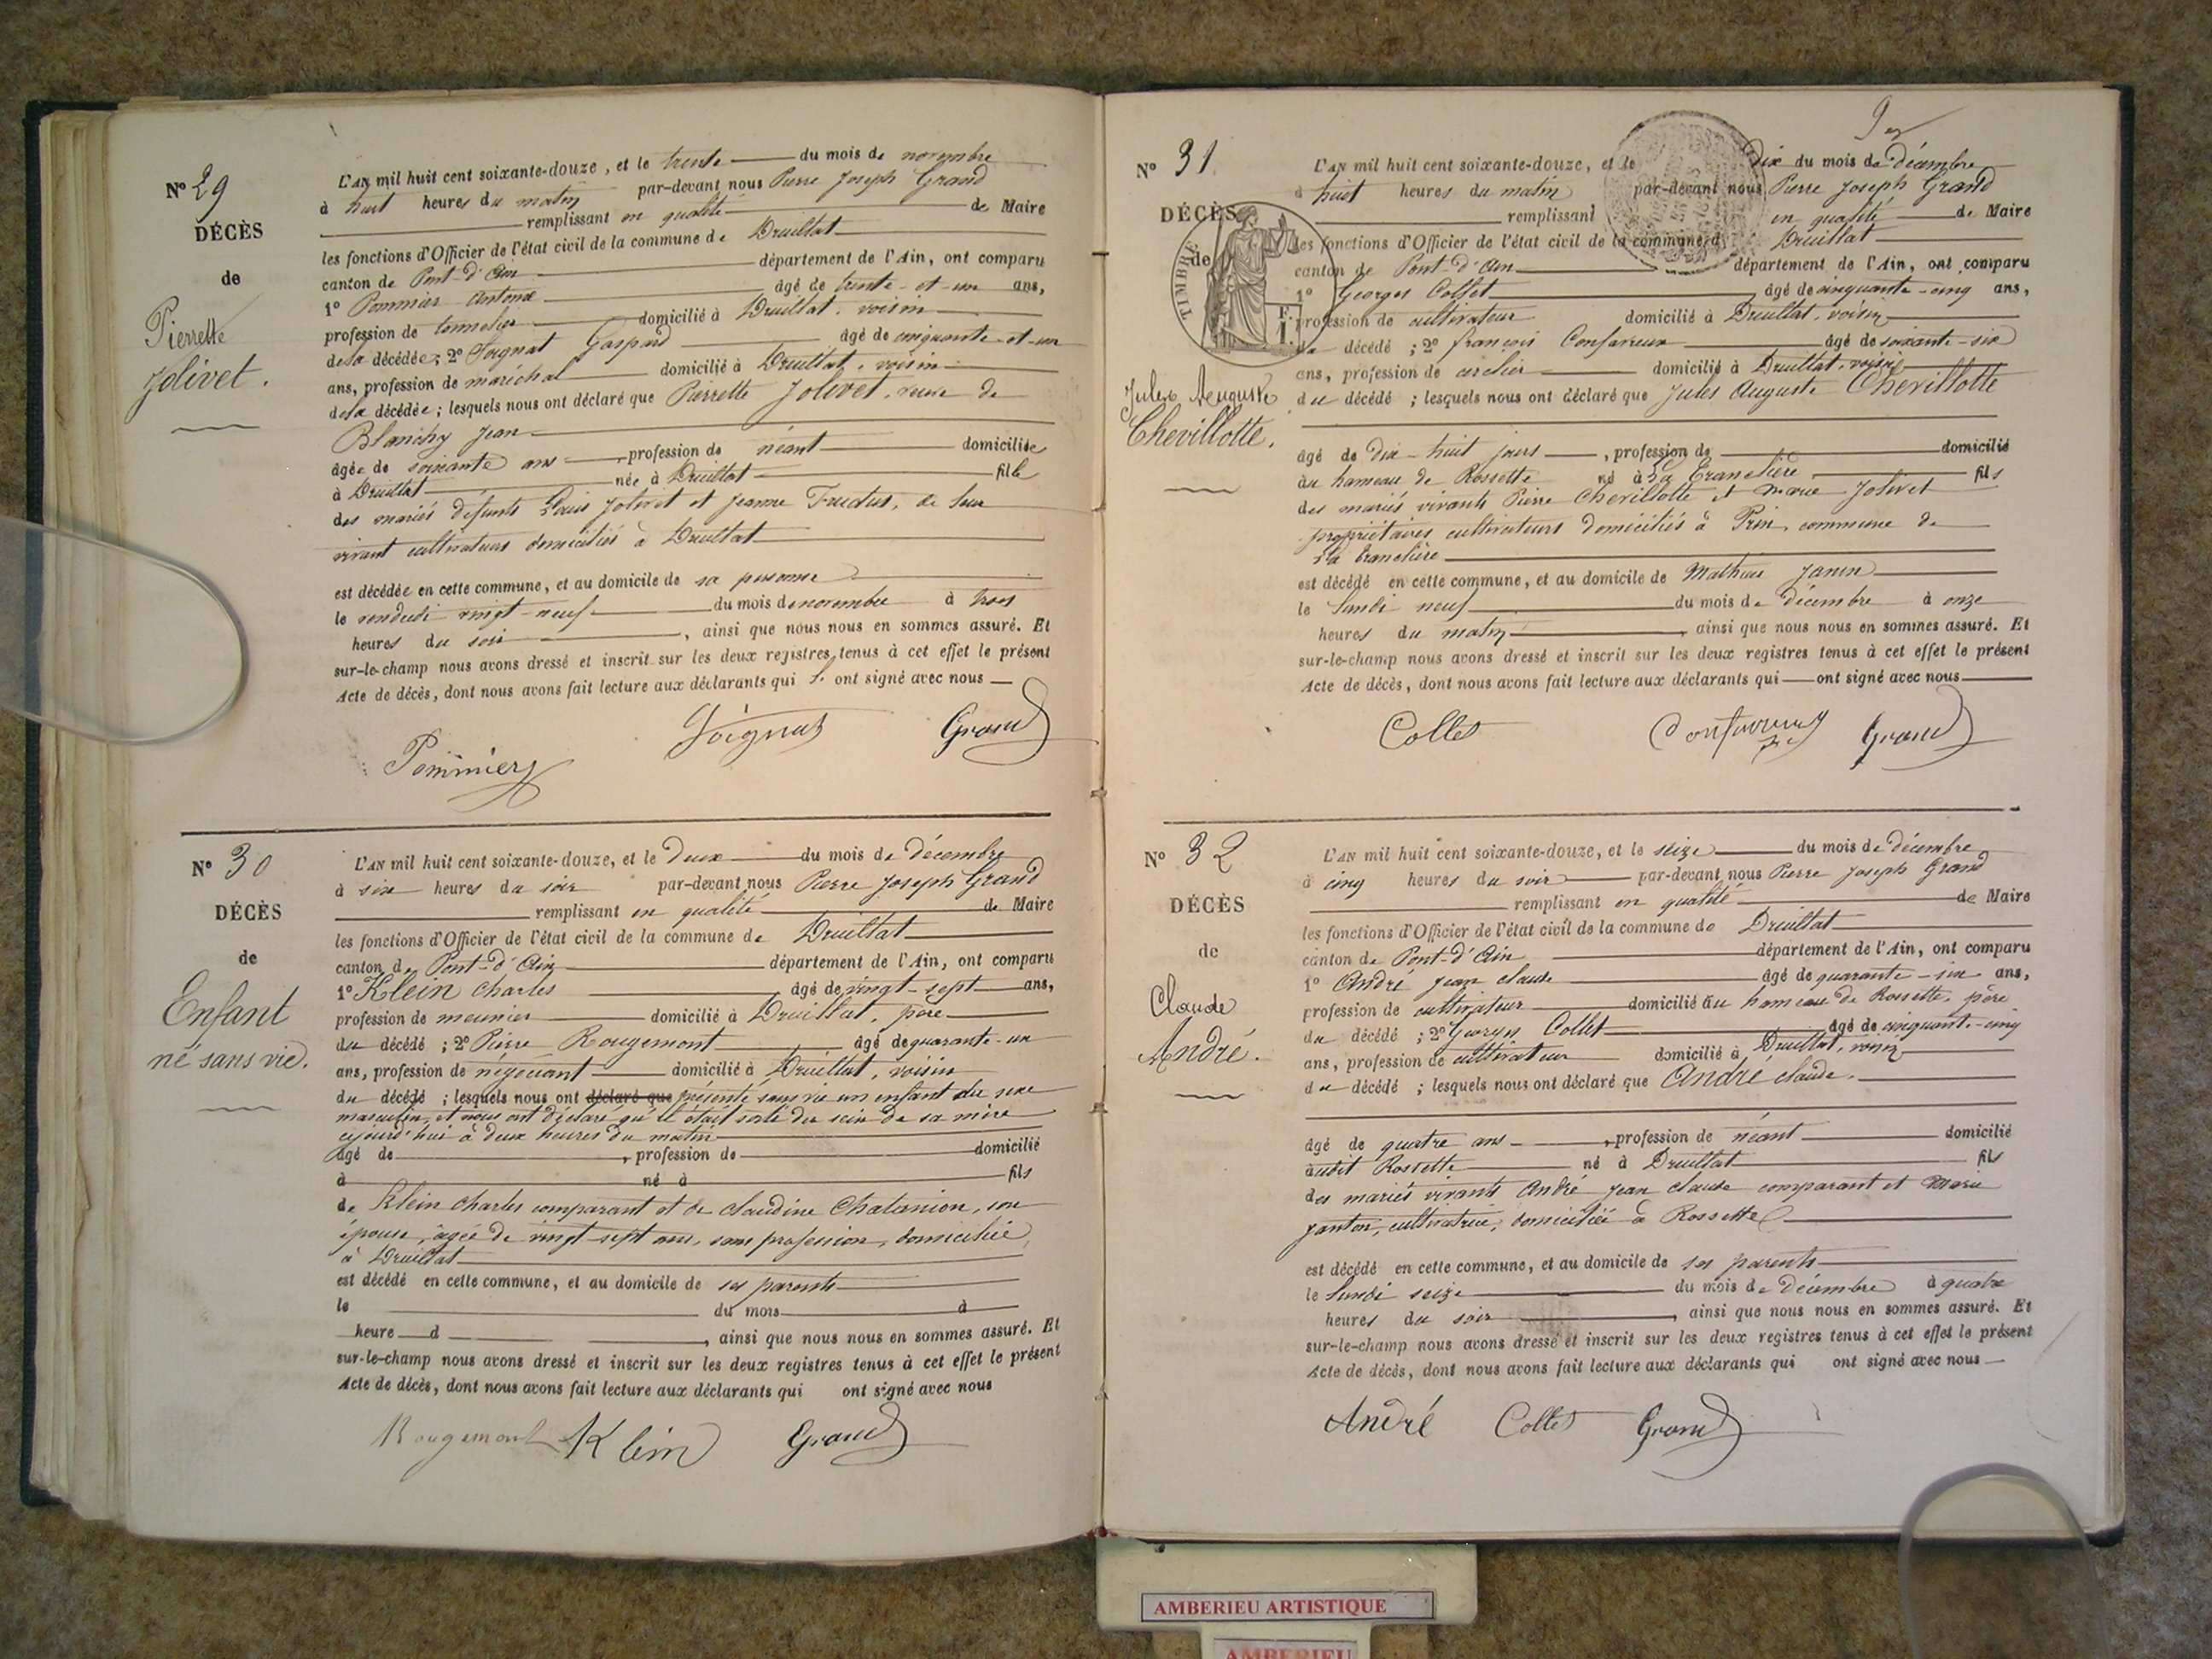 N° 29
DÉCÈS
de
Pierrette
Jolivet.
L'AN mil huit cent soixante-douze, et le trente du mois de novembre
à huit heures du matin par-devant nous Pierre Joseph Grand
remplissant en qualité de Maire
les fonctions d'Officier de l'état civil de la commune de Druillat
canton de Pont-d'Ain département de l'Ain, ont comparu
1° Pommier Antoine âgé de trente-et-un ans,
profession de tonnelier domicilié à Druillat, voisin
de la décédée; 2° Soignat Gaspard âgé de cinquante-et-un
ans, profession de maréchal domicilié à Druillat, voisin
de la décédée; lesquels nous ont déclaré que Pierrette Jolivet, veuve de
Blanchy Jean
âgée de soixante ans profession de néant domiciliée
à Druillat née à Druillat fille
des mariés défunts Louis Jolivet et Jeanne de leur
vivant cultivateurs domiciliés à Druillat
est décédée en cette commune, et au domicile de sa personne
le vendredi vingt-neuf du mois de novembre à trois
heures du soir, ainsi que nous nous en sommes assuré. Et
sur-le-champ nous avons dressé et inscrit sur les deux registres tenus à cet effet le présent
Acte de décès, dont nous avons fait lecture aux déclarants qui ont signé avec nous
Soignat Grand
Pommier
N° 30
DÉCÈS
de
Enfant
né sans vie.
L'AN mil huit cent soixante-douze, et le deux du mois de décembre
à six heures du soir par-devant nous Pierre Joseph Grand
remplissant en qualité de Maire
les fonctions d'Officier de l'état civil de la commune de Druillat
canton de Pont-d'Ain département de l'Ain, ont comparu
1° Klein Charles âgé de vingt-sept ans,
profession de meunier domicilié à Druillat, père
du décédé; 2° Pierre Rougemont âgé de quarante-un
ans, profession de négociant domicilié à Druillat, voisin
du décédé; lesquels nous ont déclaré que présenté sans vie un enfant du sexe
masculin, et nous ont déclaré qu'il était sorti du sein de sa mère
cejourd'hui à deux heures du matin
âgé de, profession de domicilié
à né à fils
de Klein Charles comparant et de Claudine Chatanion, son
épouse, âgée de vingt-sept ans, sans profession, domiciliée
à Druillat
est décédé en cette commune, et au domicile de ses parents
le du mois à
heure d, ainsi que nous nous en sommes assuré. Et
sur-le-champ nous avons dressé et inscrit sur les deux registres tenus à cet effet le présent
Acte de décès, dont nous avons fait lecture aux déclarants qui ont signé avec nous
Rougemont Klein Grand
N° 31
DÉCÈS
de
TIMBRE
Jules Auguste
Chevillotte.
L'AN mil huit cent soixante-douze, et le dix du mois de décembre
à huit heures du matin par-devant nous Pierre Joseph Grand
remplissant en qualité de Maire
les fonctions d'Officier de l'état civil de la commune d Druillat
canton de Pont-d'Ain département de l'Ain, ont comparu
1° Georges Collet âgé de cinquante-cinq ans,
profession de cultivateur domicilié à Druillat, voisin
du décédé; 2° François Confavreux âgé de soixante-six
ans, profession de cerclier domicilié à Druillat, voisin
du décédé; lesquels nous ont déclaré que Jules Auguste Chevillotte
âgé de dix-huit jours, profession de domicilié
au hameau de Rossette né à La Tranclière fils
des mariés vivants Pierre Chevillotte et Marie Jolivet
propriétaires cultivateurs domiciliés à Prin, commune de
La Tranclière
est décédé en cette commune, et au domicile de Mathieu Janin
le lundi neuf du mois de décembre à onze
heures du matin, ainsi que nous nous en sommes assuré. Et
sur-le-champ nous avons dressé et inscrit sur les deux registres tenus à cet effet le présent
Acte de décès, dont nous avons fait lecture aux déclarants qui ont signé avec nous
Collet Confavreux Grand
N° 32
DÉCÈS
de
Claude
André.
L'AN mil huit cent soixante-douze, et le seize du mois de décembre
à cinq heures du soir par-devant nous Pierre Joseph Grand
remplissant en qualité de Maire
les fonctions d'Officier de l'état civil de la commune de Druillat
canton de Pont-d'Ain département de l'Ain, ont comparu
1° André Jean Claude âgé de quarante-six ans,
profession de cultivateur domicilié au hameau de Rossette, père
du décédé; 2° Georges Collet âgé de cinquante-cinq
ans, profession de cultivateur domicilié à Druillat, voisin
du décédé; lesquels nous ont déclaré que André Claude.
âgé de quatre ans, profession de néant domicilié
audit Rossette né à Druillat fils
des mariés vivants André Jean Claude comparant et Marie
Janton, cultivatrice, domiciliée à Rossette
est décédé en cette commune, et au domicile de ses parents
le lundi seize du mois de décembre à quatre
heures du soir, ainsi que nous nous en sommes assuré. Et
sur-le-champ nous avons dressé et inscrit sur les deux registres tenus à cet effet le présent
Acte de décès, dont nous avons fait lecture aux déclarants qui ont signé avec nous
André Collet Grand
AMBERIEU ARTISTIQUE
AMBERIEU